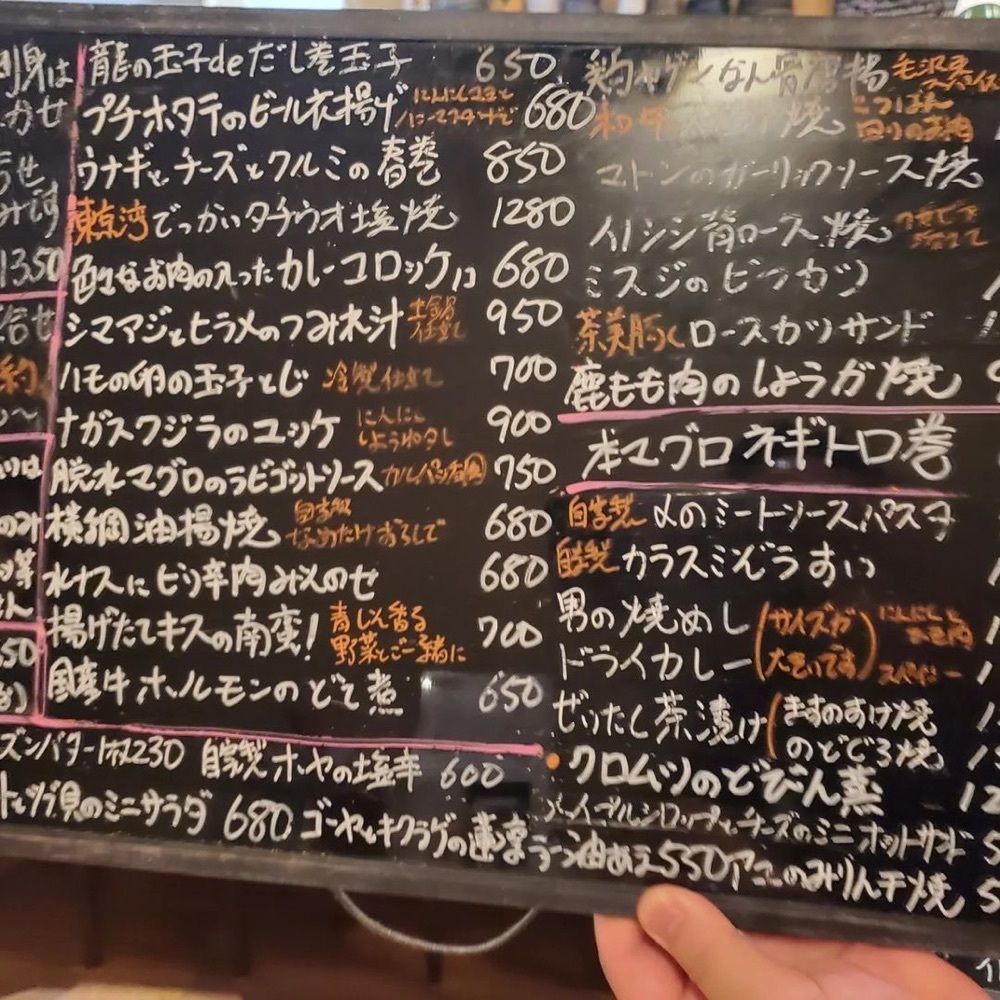 刺身は
龍の玉子deだし巻玉子 650
プチホタテのビール衣揚げ 680
ウナギとチーズとクルミの春巻 850
東京湾でっかいタチウオ塩焼 1280
1350
色々なお肉の入ったカレーコロッケ 680
シマアジとヒラメのつみれ汁 土鍋仕立て 950
ハモの卵の玉子とじ 冷製仕立て 700
ナガスクジラのユッケ にんにくしょうゆタレ 900
脱水マグロのラビゴットソース 750
横綱油揚焼 自家製なめたけおろしで 680
水ナスにピリ辛肉みそのせ 680
揚げたてキスの南蛮! 青じそ香る野菜とご一緒に 700
国産牛ホルモンのどて煮 650
ズンバター1枚230 自家製ホヤの塩辛 600
ツブ貝のミニサラダ 680 ゴーヤとキクラゲの ラー油あえ550
なん骨 揚
マトンのガーリックソース焼
イノシシ肩ロース焼
ミスジのビフカツ
茶美豚ロースカツサンド
鹿もも肉のしょうが焼
本マグロネギトロ巻
自家製 〆のミートソースパスタ
自家製 カラスミぞうすい
男の焼めし
ドライカレー (サイズが大きいです)
ぜいたく茶漬け (ますのすけ焼
のどぐろ焼
クロムツのどびん蒸
メープルシロップとチーズのミニホットサンド
みりん干焼